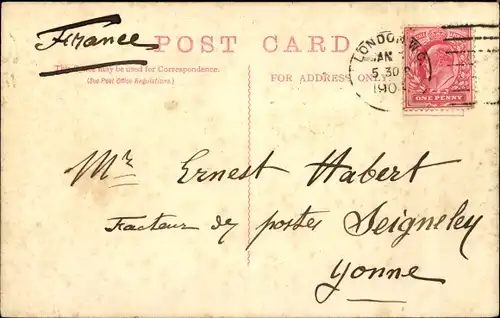 France
POST CARD
This Space may be used for Correspondence.
(See Post Office Regulations.)
FOR ADDRESS ONLY.
LONDON. W.
JAN
5.30
190
ONE PENNY
Mr Ernest Habert
Facteur des postes Seigneley
Yonne